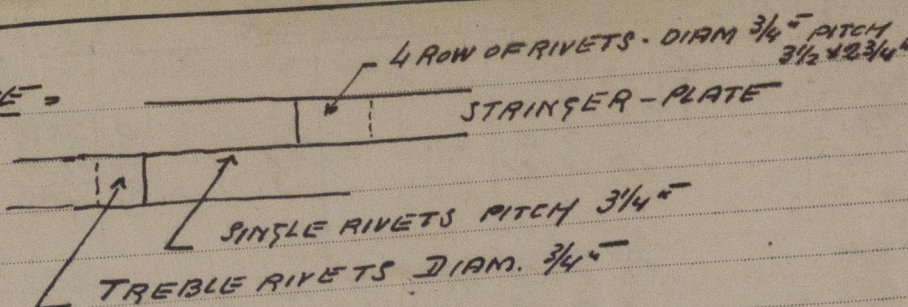 4 ROW OF RIVETS - DIAM 3/4" PITCH
3 1/2 x 2 3/4"
STRINGER-PLATE
SINGLE RIVETS PITCH 3 1/4"
TREBLE RIVETS DIAM. 3/4"